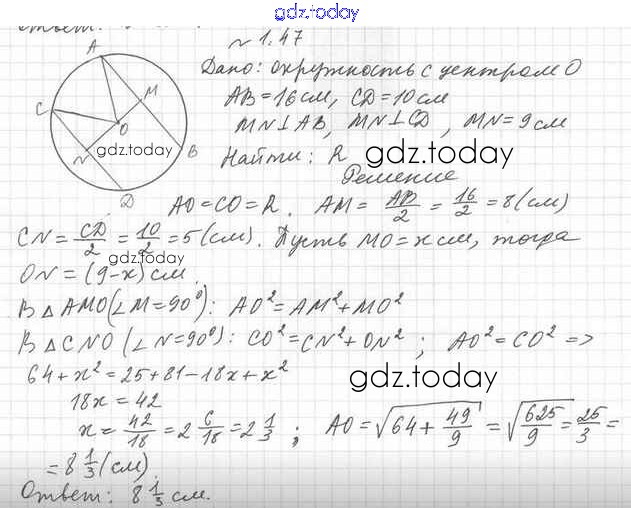 gdz.today
№ 1.47
Дано: окружность с центром О
АВ=16см, CD=10см
MN⊥AB, MN⊥CD, MN=9см
Найти: R gdz.today
Решение
A M C O N B D
gdz.today
AO=CO=R. AM = AB/2 = 16/2 = 8(см)
CN = CD/2 = 10/2 = 5(см). Пусть MO=x см, тогда
gdz.today
ON = (9-x) см.
В △AMO(∠M=90°): AO²=AM²+MO²
В △CNO (∠N=90°): CO²=CN²+ON² ; AO²=CO² =>
64+x²=25+81-18x+x²
gdz.today
18x = 42
x = 42/18 = 2 6/18 = 2 1/3 ; AO = √(64 + 49/9) = √(625/9) = 25/3 =
= 8 1/3 (см).
Ответ: 8 1/3 см.